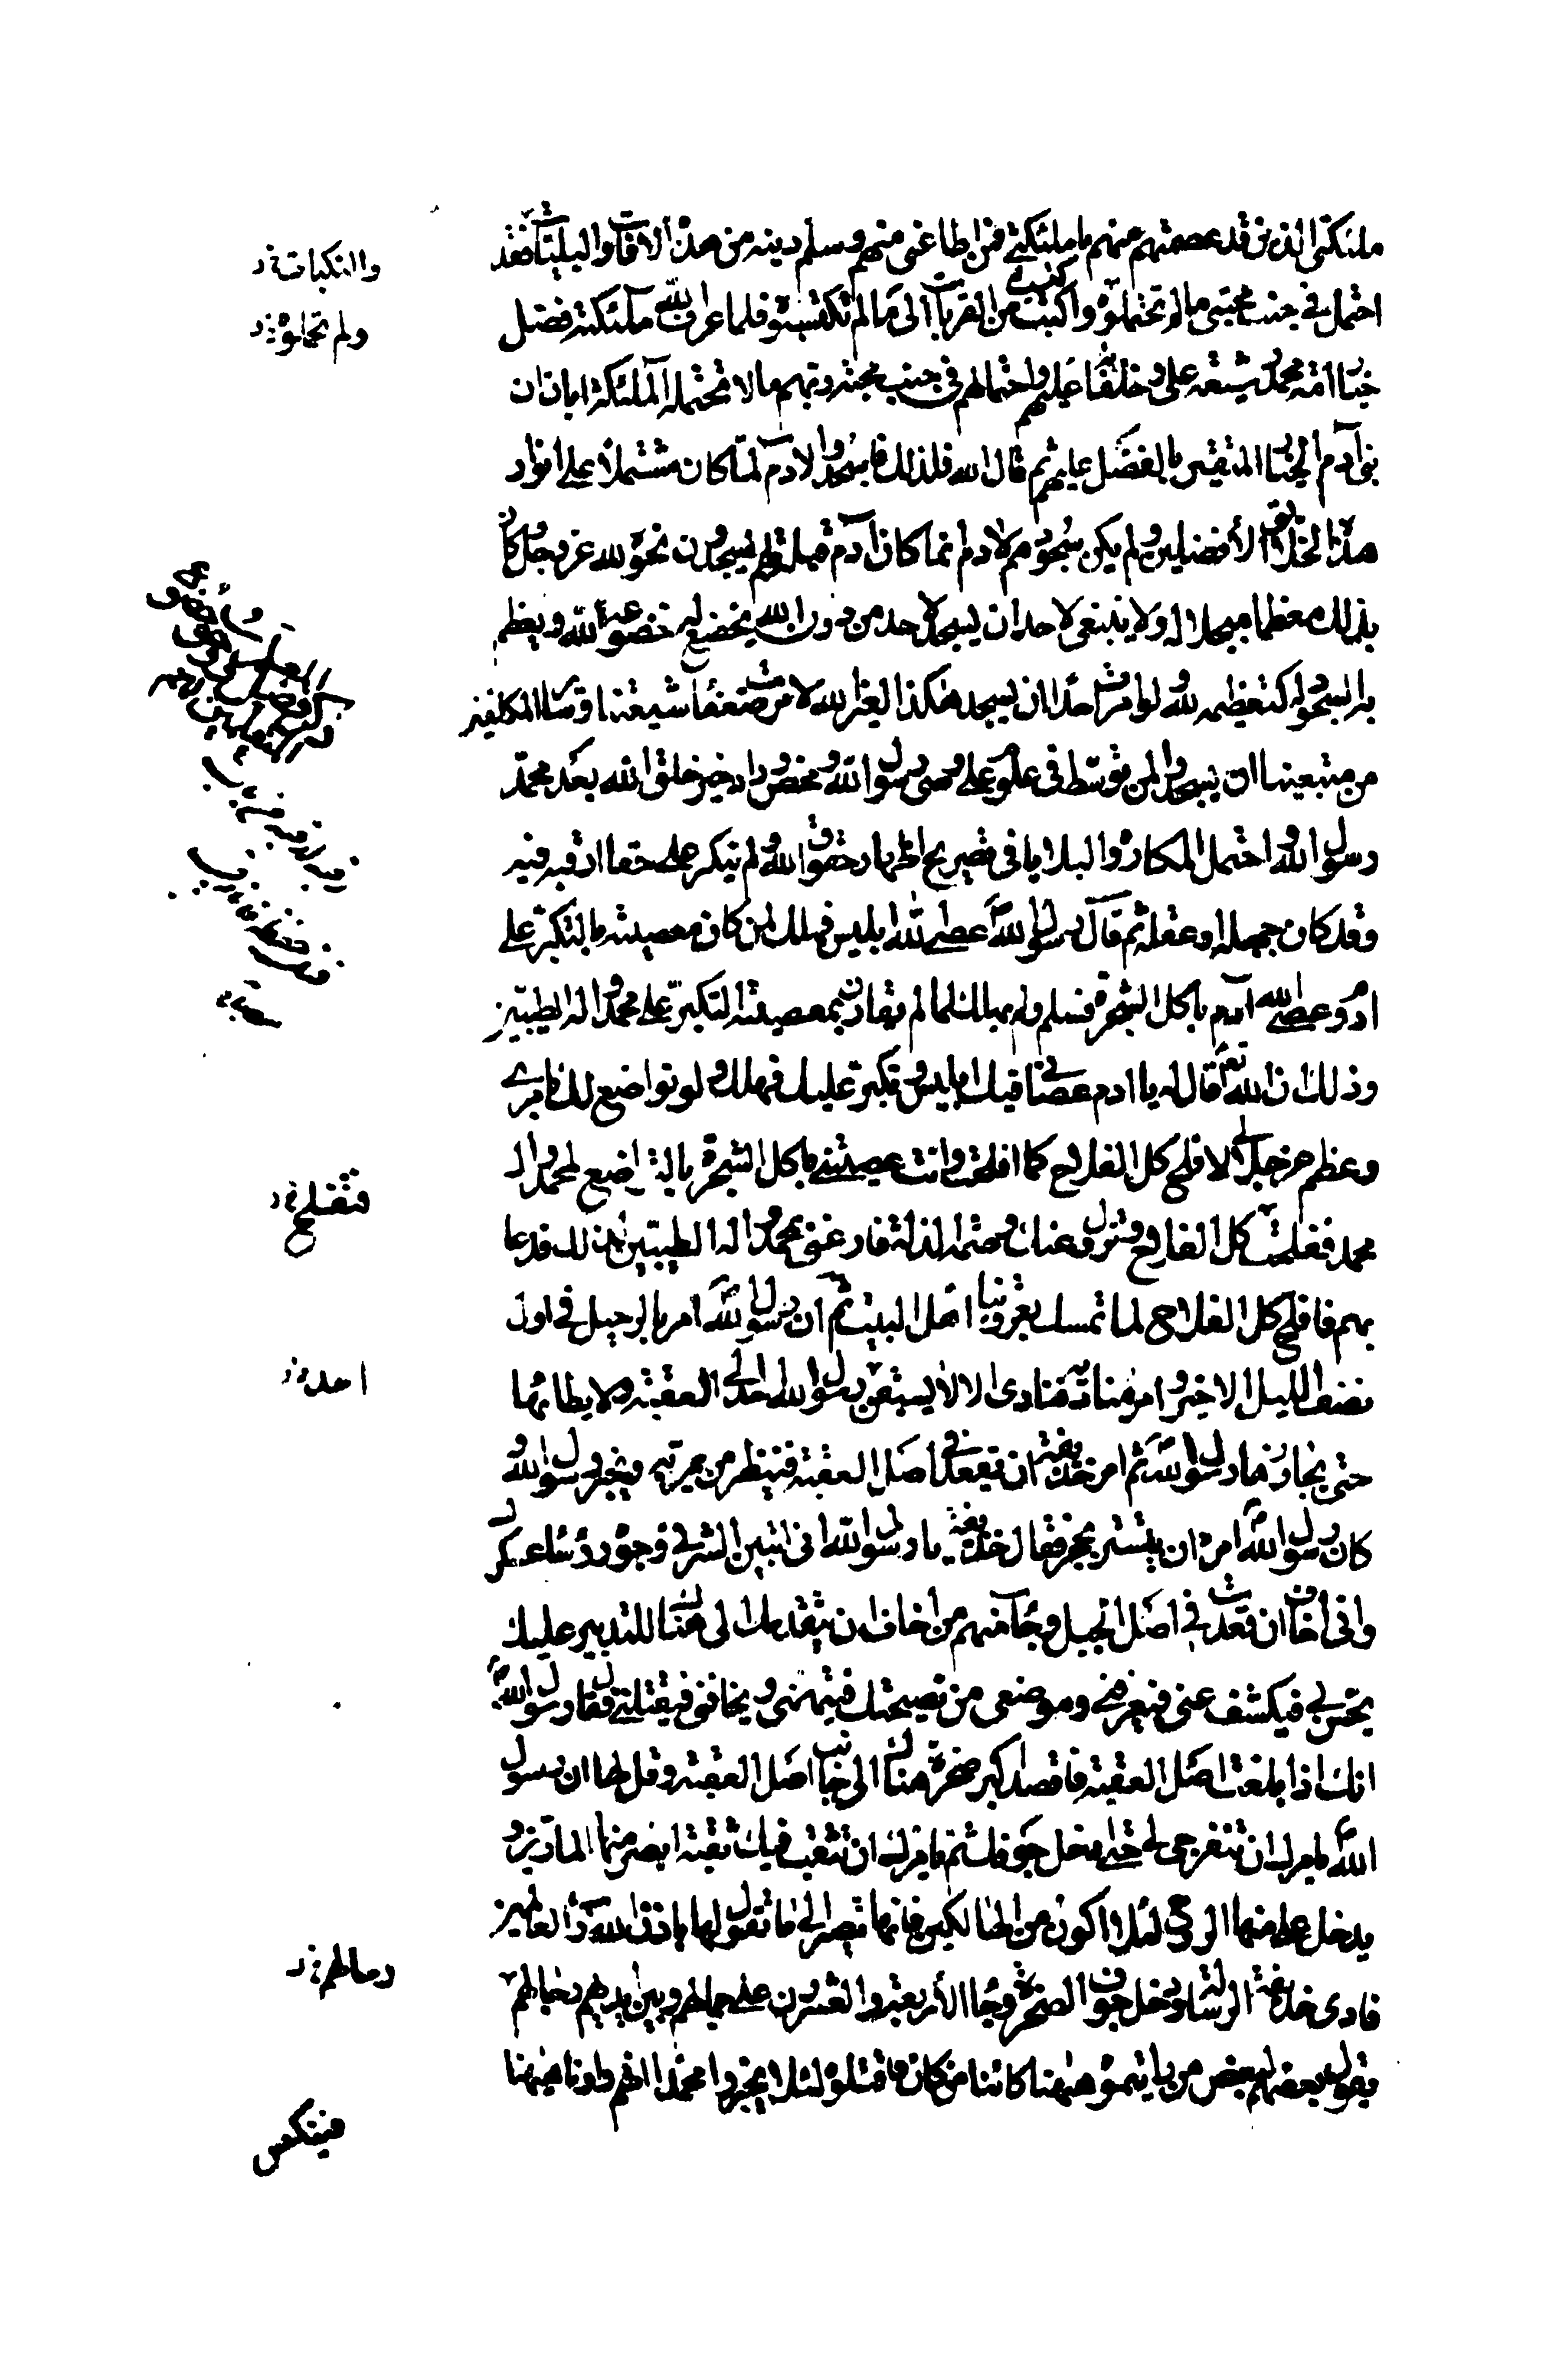 ملئكتى الذين قد عصمتهم منهم يا ملئكتى فمن اطاعنى منهم و سلم دينه من هذه الافات و البليات فقد
احتمل فى جنب محبتى ما لم تحتملوه و اكتسب من القربات الى ما لم تكتسبوه فلما عرف الله ملئكته فضل
خيار امة محمد و شيعة على و خلفائه عليهم و احتمالهم فى جنب محبة ربهم ما لا تحتمله الملئكة ابان ان
بنى آدم الخيار المتقين بالفضل عليهم ثم قال الله فلذلك فاسجدوا لادم لما كان مشتملا على انوار
هذه الخلايق الافضلين و لم يكن سجودهم لادم انما كان آدم قبلة لهم يسجدون نحوه لله عز و جل و كان
بذلك معظما مبجلا له و لا ينبغى لاحد ان يسجد لاحد من دون الله يخضع له خضوعه لله و يعظم
بالسجود له كتعظيمه لله و لو امرت احدا ان يسجد هكذا لغير الله لامرت ضعفاء شيعتنا و سائر المكلفين
من متبعينا ان يسجدوا لمن توسط فى علوم على وصى رسول الله و محض وداد خير خلق الله بعد محمد
رسول الله و احتمل المكاره و البلايا فى تصريح اظهار حقوق الله و لم ينكر على حقا ارقبه فيه
و قد كان جهله او عقله ثم قال رسول الله عصى الله ابليس فهلك لمن كان معصيته بالتكبر على
ادم و عصى الله آدم باكل الشجرة فسلم و لم يهلك لما لم يقارن بمعصيته التكبر على محمد و اله الطيبين
و ذلك ان الله تعالى قال له يا ادم عصانى فيك ابليس و تكبر عليك فهلك و لو تواضع لك بامرى
و عظم عز جلالى لافلح كل الفلاح كما افلحت و انت عصيتنى باكل الشجرة بالتواضع لمحمد و ال
محمد ففلحت كل الفلاح و تزول عنك وصمة الذلة فادعنى بمحمد و اله الطيبين لذلك فدعا
بهم فافلح كل الفلاح لما تمسك بعروتنا اهل البيت ثم ان رسول الله امر بالرحيل فى اول
نصف الليل الاخير و امر مناديه فنادى الا لا يسبقن رسول الله احد الى العقبة و لا يطائها
حتى يجاوزها رسول الله ثم امر حذيفة ان يقعد فى اصل العقبة فينظر من يمر به و يخبر رسول الله و
كان رسول الله امره ان يتستر بحجر فقال حذيفة يا رسول الله انى اتبين الشر فى وجوه رؤساء عسكرك
و انى اخاف ان قعدت فى اصل الجبل و جاء منهم من اخاف ان يتقدمك الى هناك للتدبير عليك
يحس بى فيكشف عنى فيعرفنى و موضعى من نصيحتك فيتهمنى و يخافنى فيقتلنى فقال رسول الله
انك اذا بلغت اصل العقبة فاقصد اكبر صخرة هناك الى جانب اصل العقبة و قل لها ان رسول
الله يامرك ان تنفرجى لى حتى ادخل جوفك ثم يامرك ان تثقب فيك ثقبة ابصر منها المارين و
يدخل على منها الروح لئلا اكون من الهالكين فانها تصير الى ما تقول لها باذن الله رب العالمين
فادى حذيفة الرسالة و دخل جوف الصخرة و جاء الاربعة و العشرون على جمالهم و بين ايديهم رجالتهم
يقول بعضهم لبعض من رايتموه ههنا كائنا من كان فاقتلوه لئلا يخبروا محمدا انهم راونا ههنا
و النكبات خ د
و لم تحملوه خ د
فتفلح خ د
احد خ د
فينكص